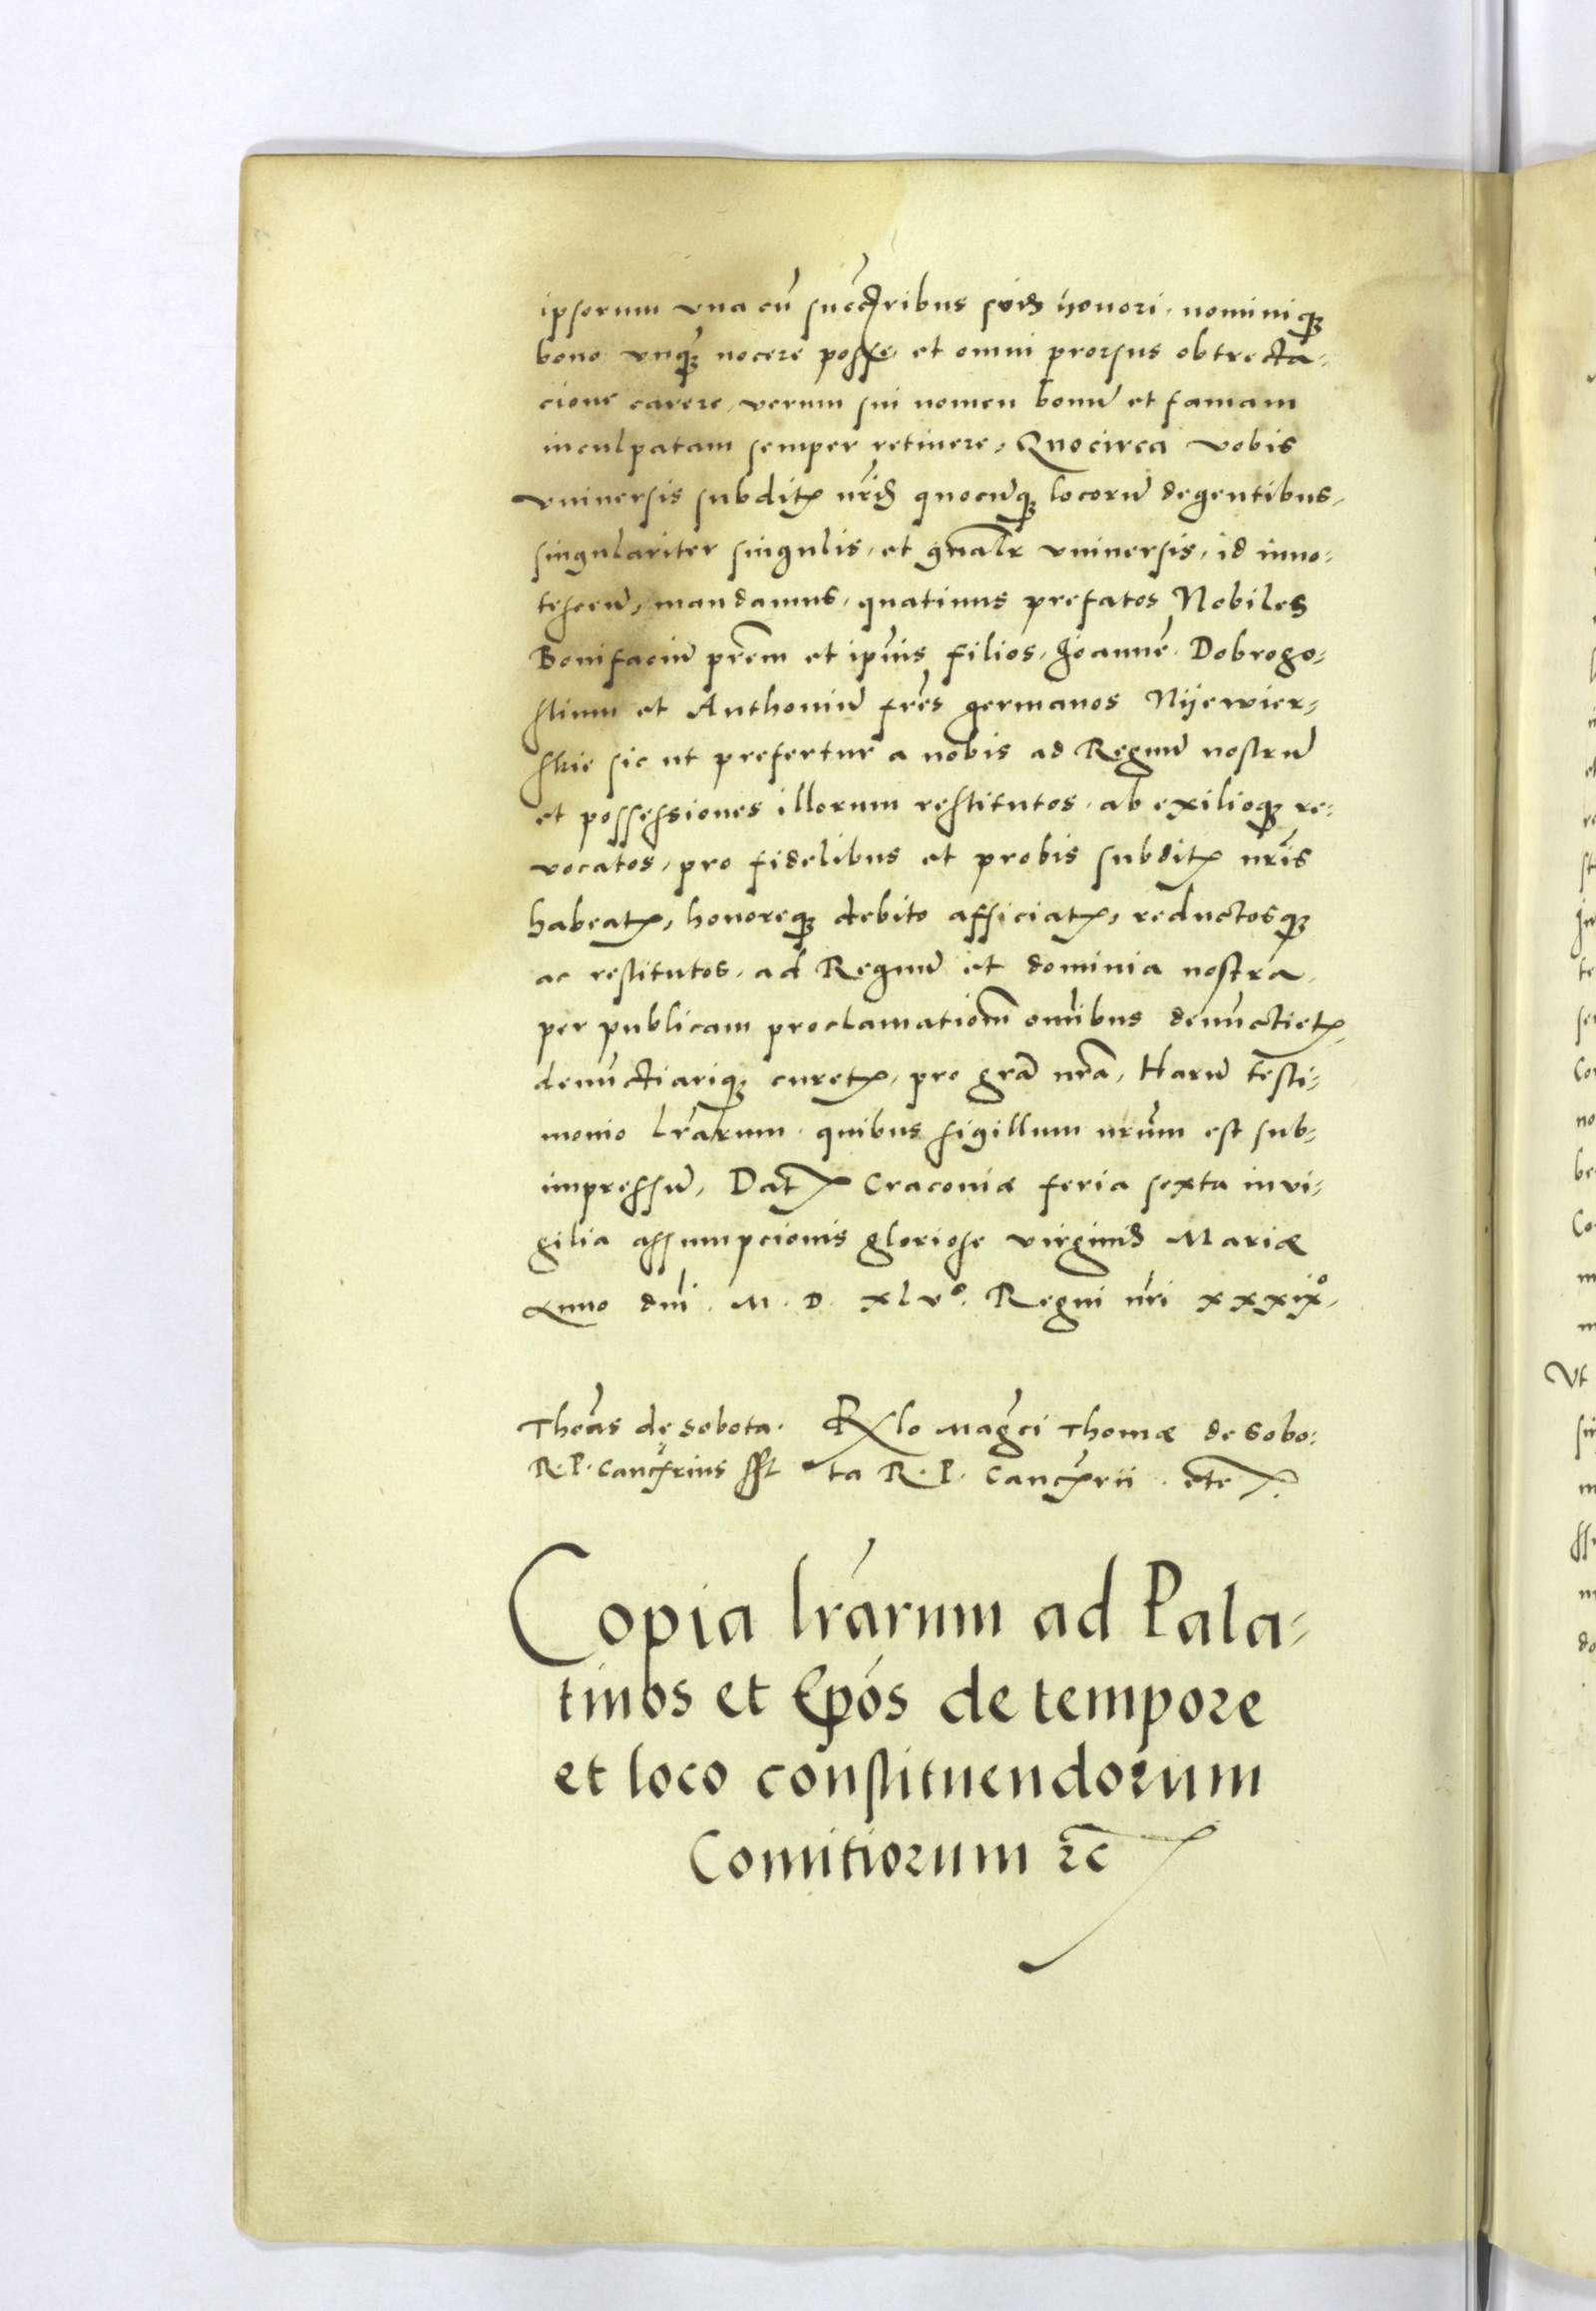 ipsorum vna cū succ̄oribus suis honori, nominiq;
bono vnq̄; nocere posse, et omni prorsus obtrecta-
cione carere, verum sui nomen bonū et famam
inculpatam semper retinere, Quocirca vobis
vniuersis subditꝭ nr̄is quocūq; locorū degentibus,
singulariter singulis, et gn̄alr̄ vniuersis, id inno-
tescen̄, mandamus, quatinus prefatos Nobiles
Bonifaciū pr̄em et ipīus filios, Joannē, Dobrogo-
stium et Anthoniū fr̄es germanos Nijewier-
skie sic ut prefertur a nobis ad Regnū nostrū
et possessiones illorum restitutos, ab exilioq; re-
vocatos, pro fidelibus et probis subditꝭ nr̄is
habeatꝭ, honoreq; debito afficiatꝭ, reductosq;
ac restitutos, ad Regnū et dominia nostra,
per publicam proclamatiom̄ om̄ibus denūctietꝭ,
denūctiariq; curetꝭ, pro gr̄a nr̄a, Harū testi-
monio lr̄arum, quibus sigillum nr̄um est sub-
impressū, Datꝭ Craconiæ feria sexta in vi-
gilia assumpcionis gloriose virginis Mariæ
Anno dn̄i . M . D . xlvº. Regni nr̄i xxxixº,
Tho̅as de Sobota. Rl̄o Mag̅ci Thomæ de Sobo-
R. P. Canc̄rius sst ta R. P. Canc̄rii . etc̄.
Copia lr̄arum ad Pala-
tinos et Ep̄os de tempore
et loco constituendorum
Comitiorum ⁊c̄